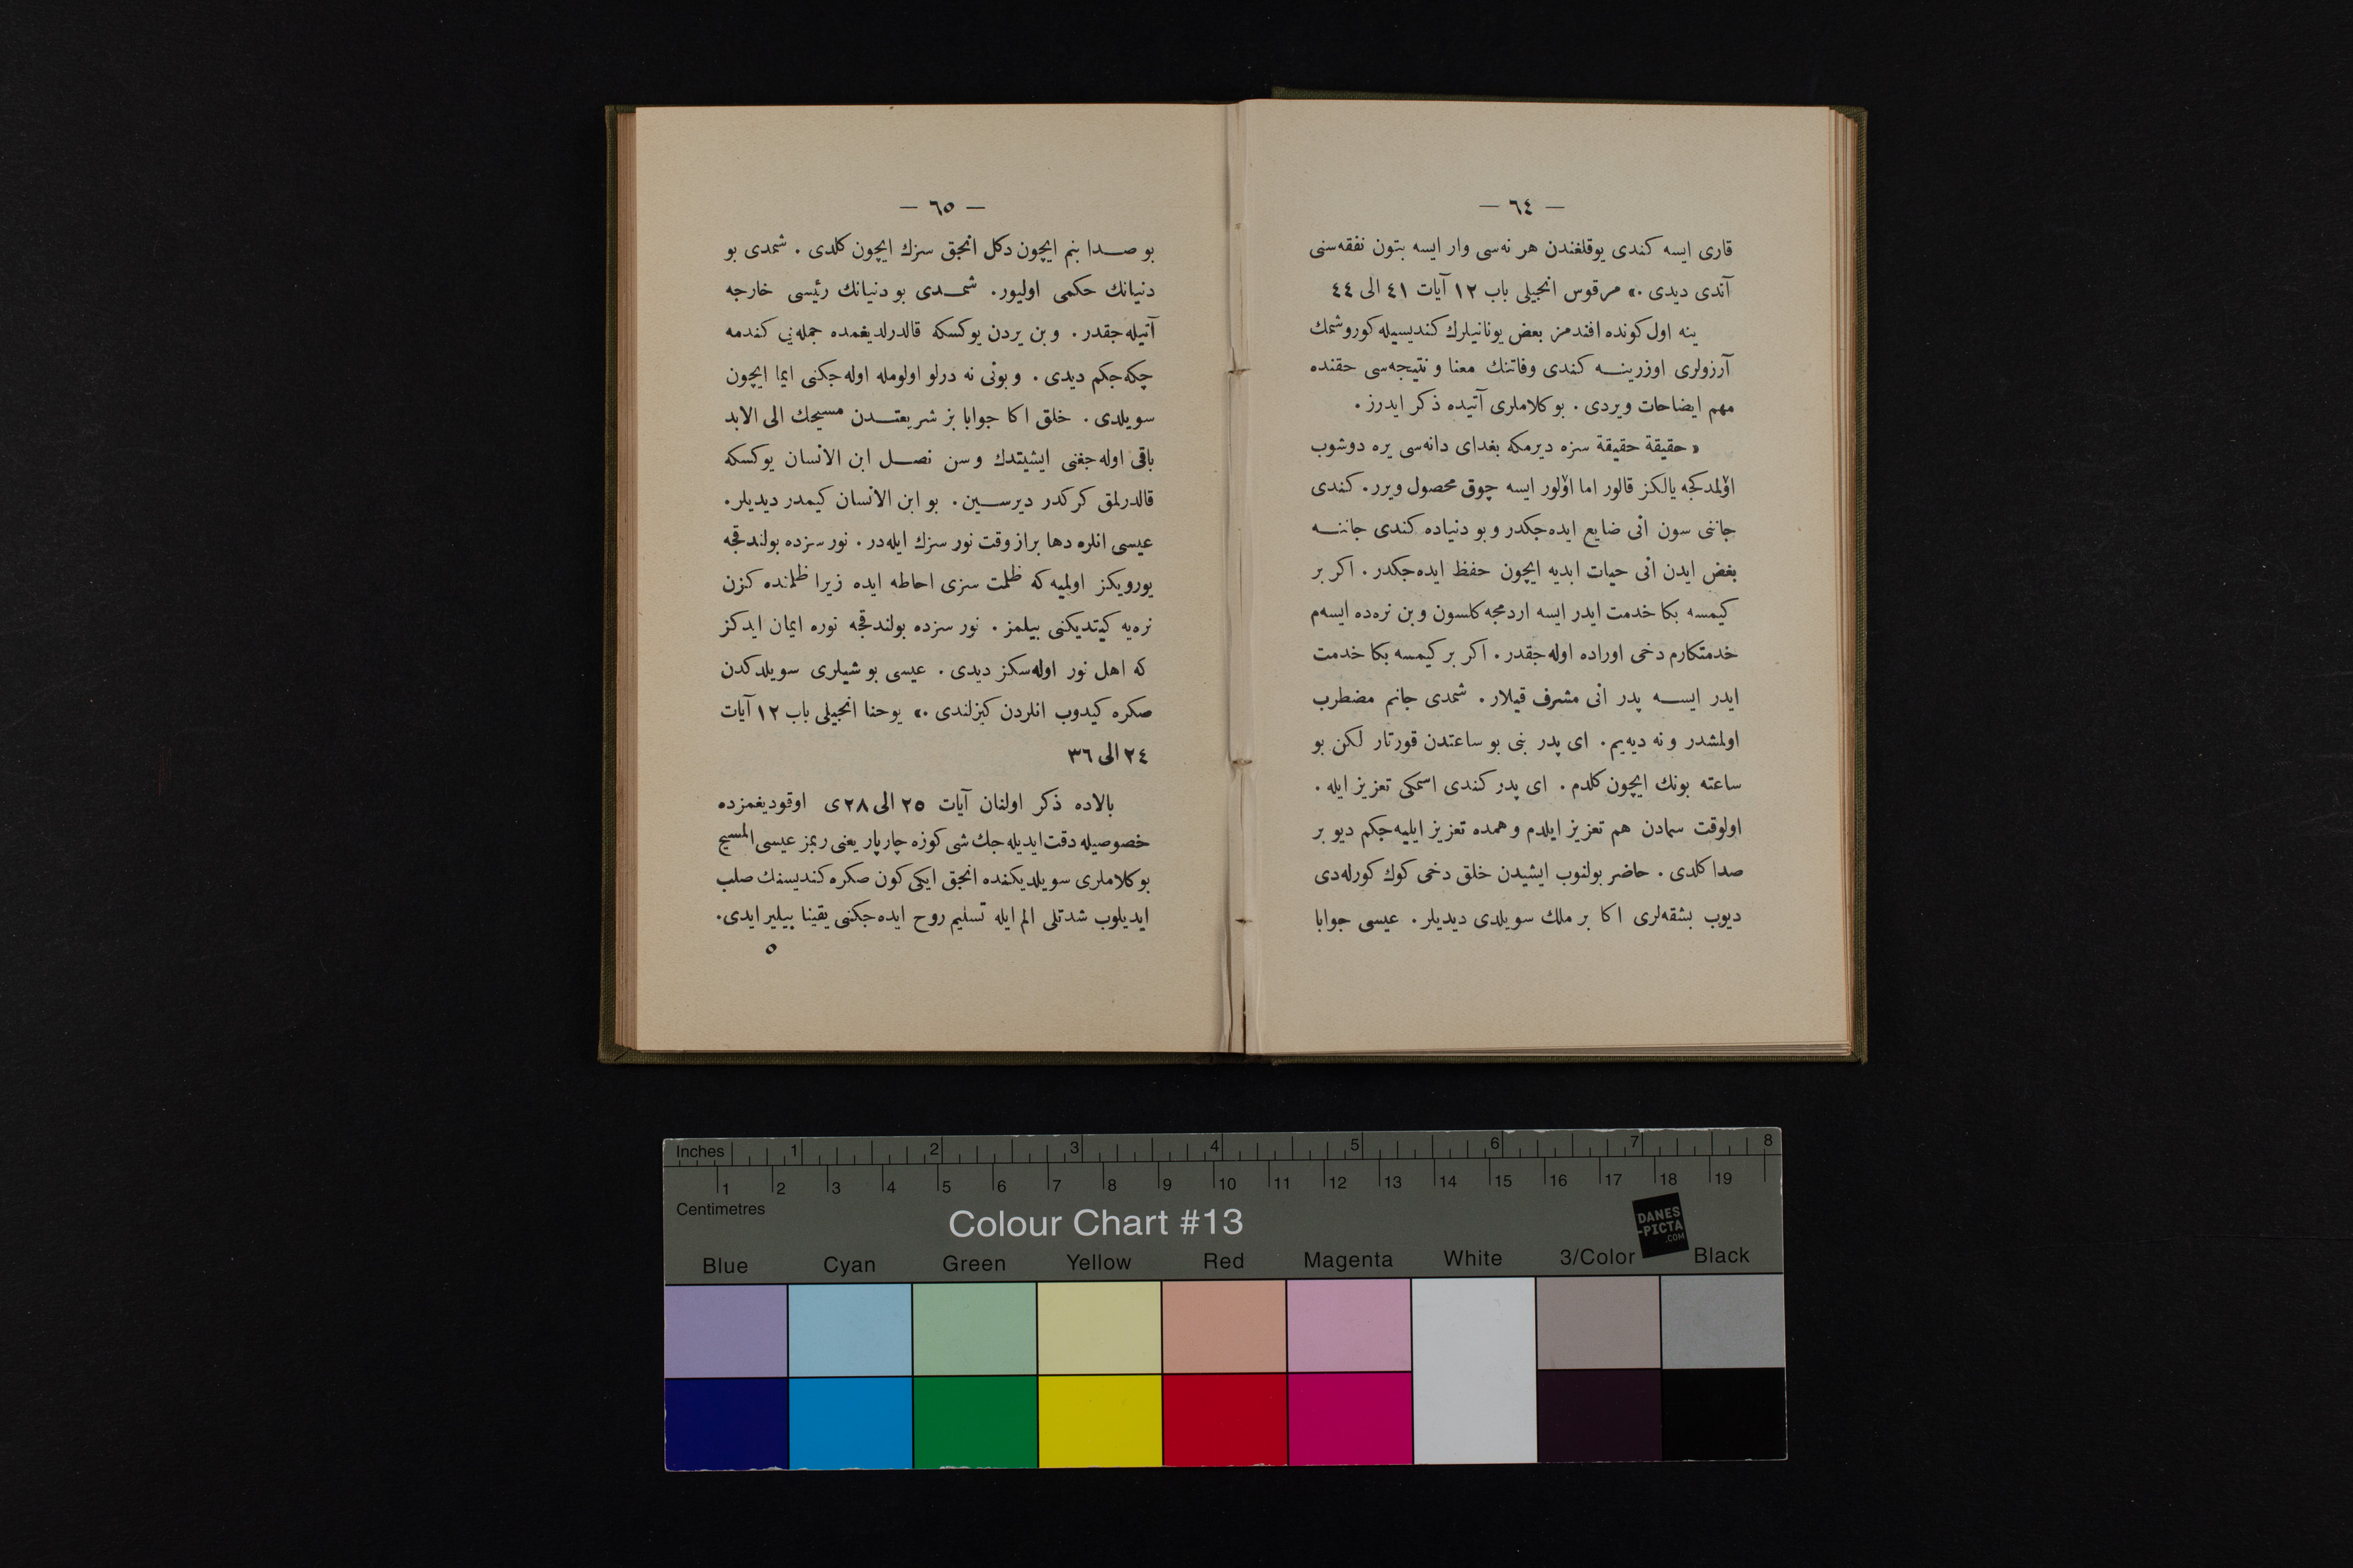 — ٦٤ —
قاری ایسه کندی یوقلغندن هر نه‌سی وار ایسه بتون نفقه‌سنی
آندی دیدی .» مرقوس انجیلی باب ١٢ آیات ٤١ الی ٤٤
ینه اول کونده افندمز بعض یونانیلرك کندیسیله کوروشمك
آرزولری اوزرینه کندی وفاتنك معنا و نتیجه‌سی حقنده
مهم ایضاحات ویردی . بو کلاملری آتیده ذکر ایدرز .
« حقیقة حقیقة سزه دیرمکه بغدای دانه‌سی یره دوشوب
اؤلمدکجه یالکز قالور اما اؤلور ایسه چوق محصول ویرر . کندی
جاننی سون انی ضایع ایده‌جکدر و بو دنیاده کندی جاننه
بغض ایدن انی حیات ابدیه ایچون حفظ ایده‌جکدر . اکر بر
کیمسه بکا خدمت ایدر ایسه اردمجه کلسون و بن نره‌ده ایسه‌م
خدمتکارم دخی اوراده اوله‌جقدر . اکر بر کیمسه بکا خدمت
ایدر ایسه پدر انی مشرف قیلار . شمدی جانم مضطرب
اولمشدر و نه دیه‌یم . ای پدر بنی بو ساعتدن قورتار لکن بو
ساعته بونك ایچون کلدم . ای پدر کندی اسمکی تعزیز ایله .
اولوقت سمادن هم تعزیز ایلدم و همده تعزیز ایلیه‌جکم دیو بر
صدا کلدی . حاضر بولنوب ایشیدن خلق دخی کوك کورله‌دی
دیوب بشقه‌لری اکا بر ملك سویلدی دیدیلر . عیسی جوابا
— ٦٥ —
بو صدا بنم ایچون دکل انجق سزك ایچون کلدی . شمدی بو
دنیانك حکمی اولیور . شمدی بو دنیانك رئیسی خارجه
آتیله‌جقدر . و بن یردن یوکسکه قالدرلدیغمده جمله‌یی کندمه
چکه‌جکم دیدی . و بونی نه درلو اولومله اوله‌جکنی ایما ایچون
سویلدی . خلق اکا جوابا بز شریعتدن مسیحك الی الابد
باقی اوله‌جغنی ایشیتدك و سن نصل ابن الانسان یوکسکه
قالدرلمق کرکدر دیرسین . بو ابن الانسان کیمدر دیدیلر .
عیسی انلره دها براز وقت نور سزك ایله‌در . نور سزده بولندقجه
یورویکز اولمیه که ظلمت سزی احاطه ایده زیرا ظلمتده کزن
نره‌یه کیتدیکنی بیلمز . نور سزده بولندقجه نوره ایمان ایدکز
که اهل نور اوله‌سکز دیدی . عیسی بو شیلری سویلدکدن
صکره کیدوب انلردن کیزلندی .» یوحنا انجیلی باب ١٢ آیات
٢٤ الی ٣٦
بالاده ذکر اولنان آیات ٢٥ الی ٢٨ ی اوقودیغمزده
خصوصیله دقت ایدیله‌جك شی کوزه چارپار یعنی ربمز عیسی المسیح
بو کلاملری سویلدیکنده انجق ایکی کون صکره کندیسنك صلب
ایدیلوب شدتلی الم ایله تسلیم روح ایده‌جکنی یقینا بیلیر ایدی .
٥
Inches 1 2 3 4 5 6 7 8
1 2 3 4 5 6 7 8 9 10 11 12 13 14 15 16 17 18 19
Centimetres
Colour Chart #13
DANES
-PICTA
.COM
Blue Cyan Green Yellow Red Magenta White 3/Color Black